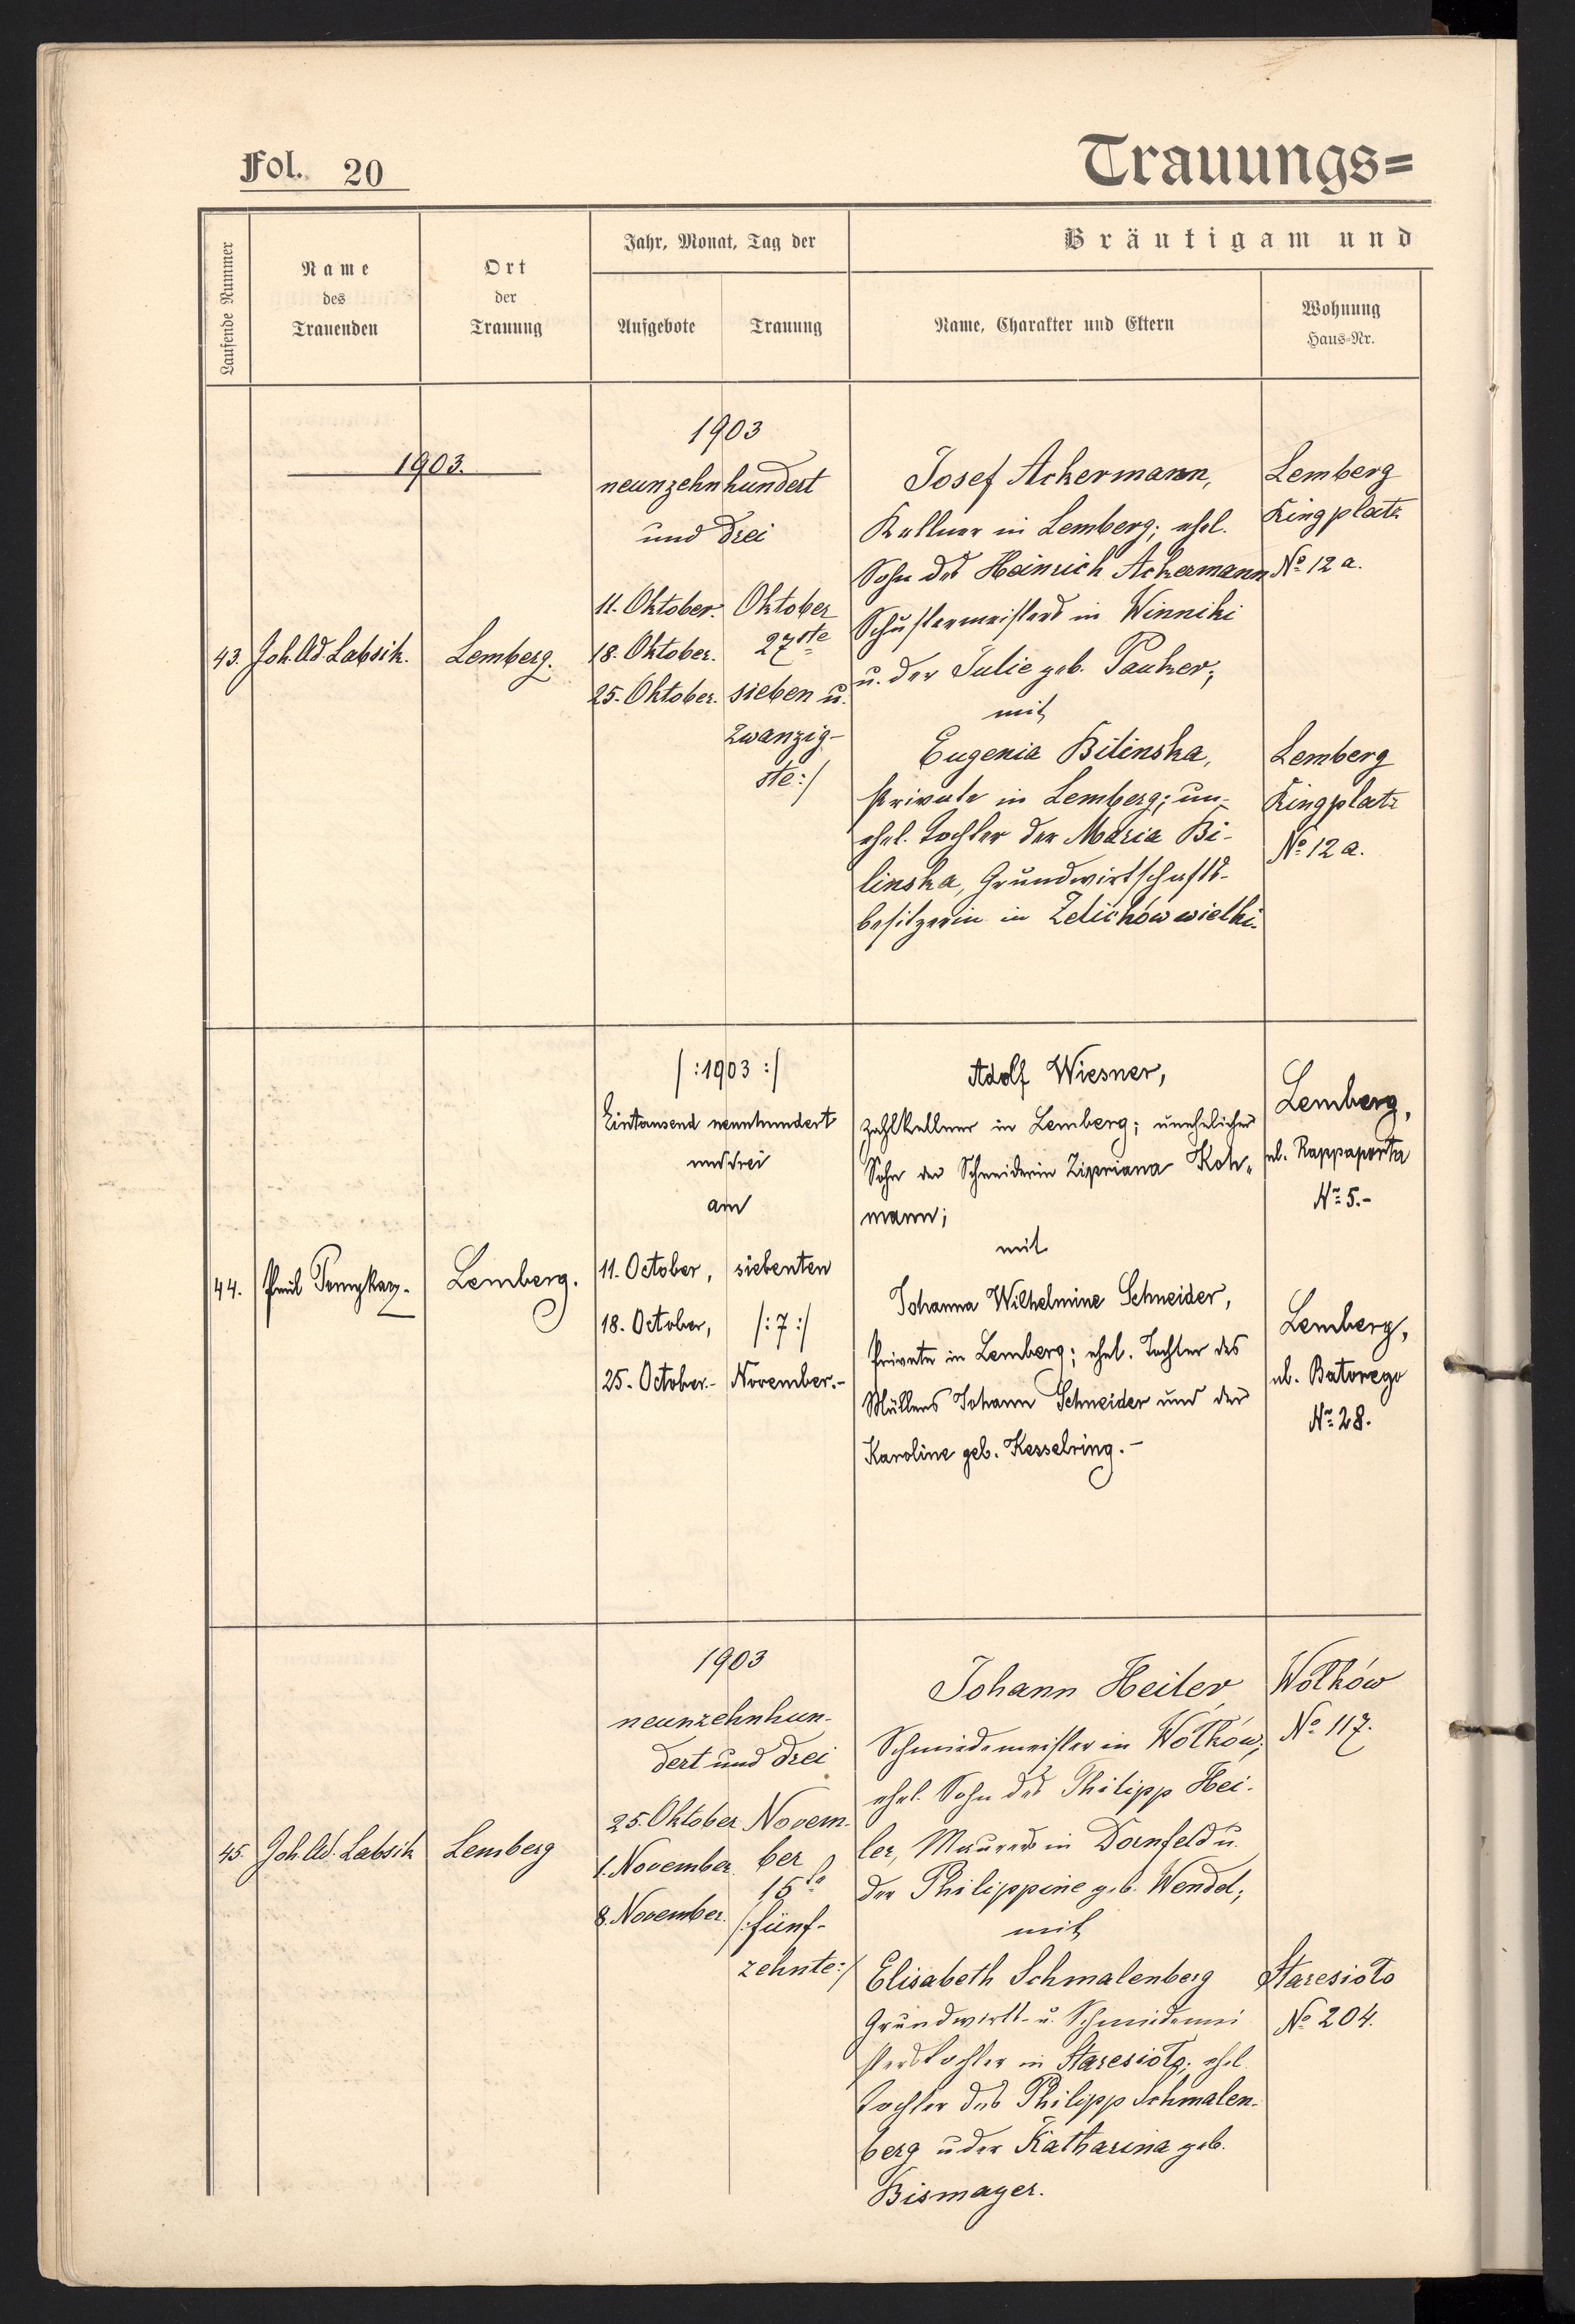 Fol. 20
Trauungs=
Laufende Nummer
Name
des
Trauenden
Ort
der
Trauung
Jahr, Monat, Tag der
Aufgebote
Trauung
Bräutigam und
Name, Charakter und Eltern
Wohnung
Haus=Nr.
1903.
43.
Joh. Ad. Labsik.
Lemberg.
1903
neunzehnhundert
und drei
11. Oktober.
18. Oktober.
25. Oktober.
Oktober
27ste
sieben u.
zwanzig-
ste:/
Josef Ackermann,
Kellner in Lemberg; ehel.
Sohn des Heinrich Ackermann
Schustermeisters in Winniki
u. der Julie geb. Pauker;
mit
Eugenia Bilinska,
Private in Lemberg; un-
ehel. Tochter der Maria Bi-
linska, Grundwirtschafts-
besitzerin in Zelichów wielki.
Lemberg
Ringplatz
No 12 a.
Lemberg
Ringplatz
No 12 a.
44.
Paul
Lemberg.
/:1903:/
Eintausend neunhundert
und drei
am
11. October,
18. October,
25. October.-
siebenten
/:7:/
November.-
Adolf Wiesner,
Zahlkellner in Lemberg; unehelicher
Sohn der Schneiderin Zipriana Koh-
mann;
mit
Johanna Wilhelmine Schneider,
Private in Lemberg; ehel. Tochter des
Müllers Johann Schneider und der
Karoline geb. Kesselring.-
Lemberg,
ul. Rappaporta
No 5.-
Lemberg,
ul. Batorego
No 28.
45.
Joh. Ad. Labsik
Lemberg
1903
neunzehnhun-
dert und drei
25. Oktober
1. November.
8. November.
Novem-
ber
15te
/:fünf-
zehnte:/
Johann Heiler
Schmiedemeister in Wołków;
ehel. Sohn des Philipp Hei-
ler, Maurers in Dornfeld u.
der Philippine geb. Wendel;
mit
Elisabeth Schmalenberg
Grundwirts- u. Schmiedemei
sterstochter in Staresioło; ehel.
Tochter des Philipp Schmalen-
berg u der Katharina geb.
Bismayer.
Wołków
No 117.
Staresioło
No 204.